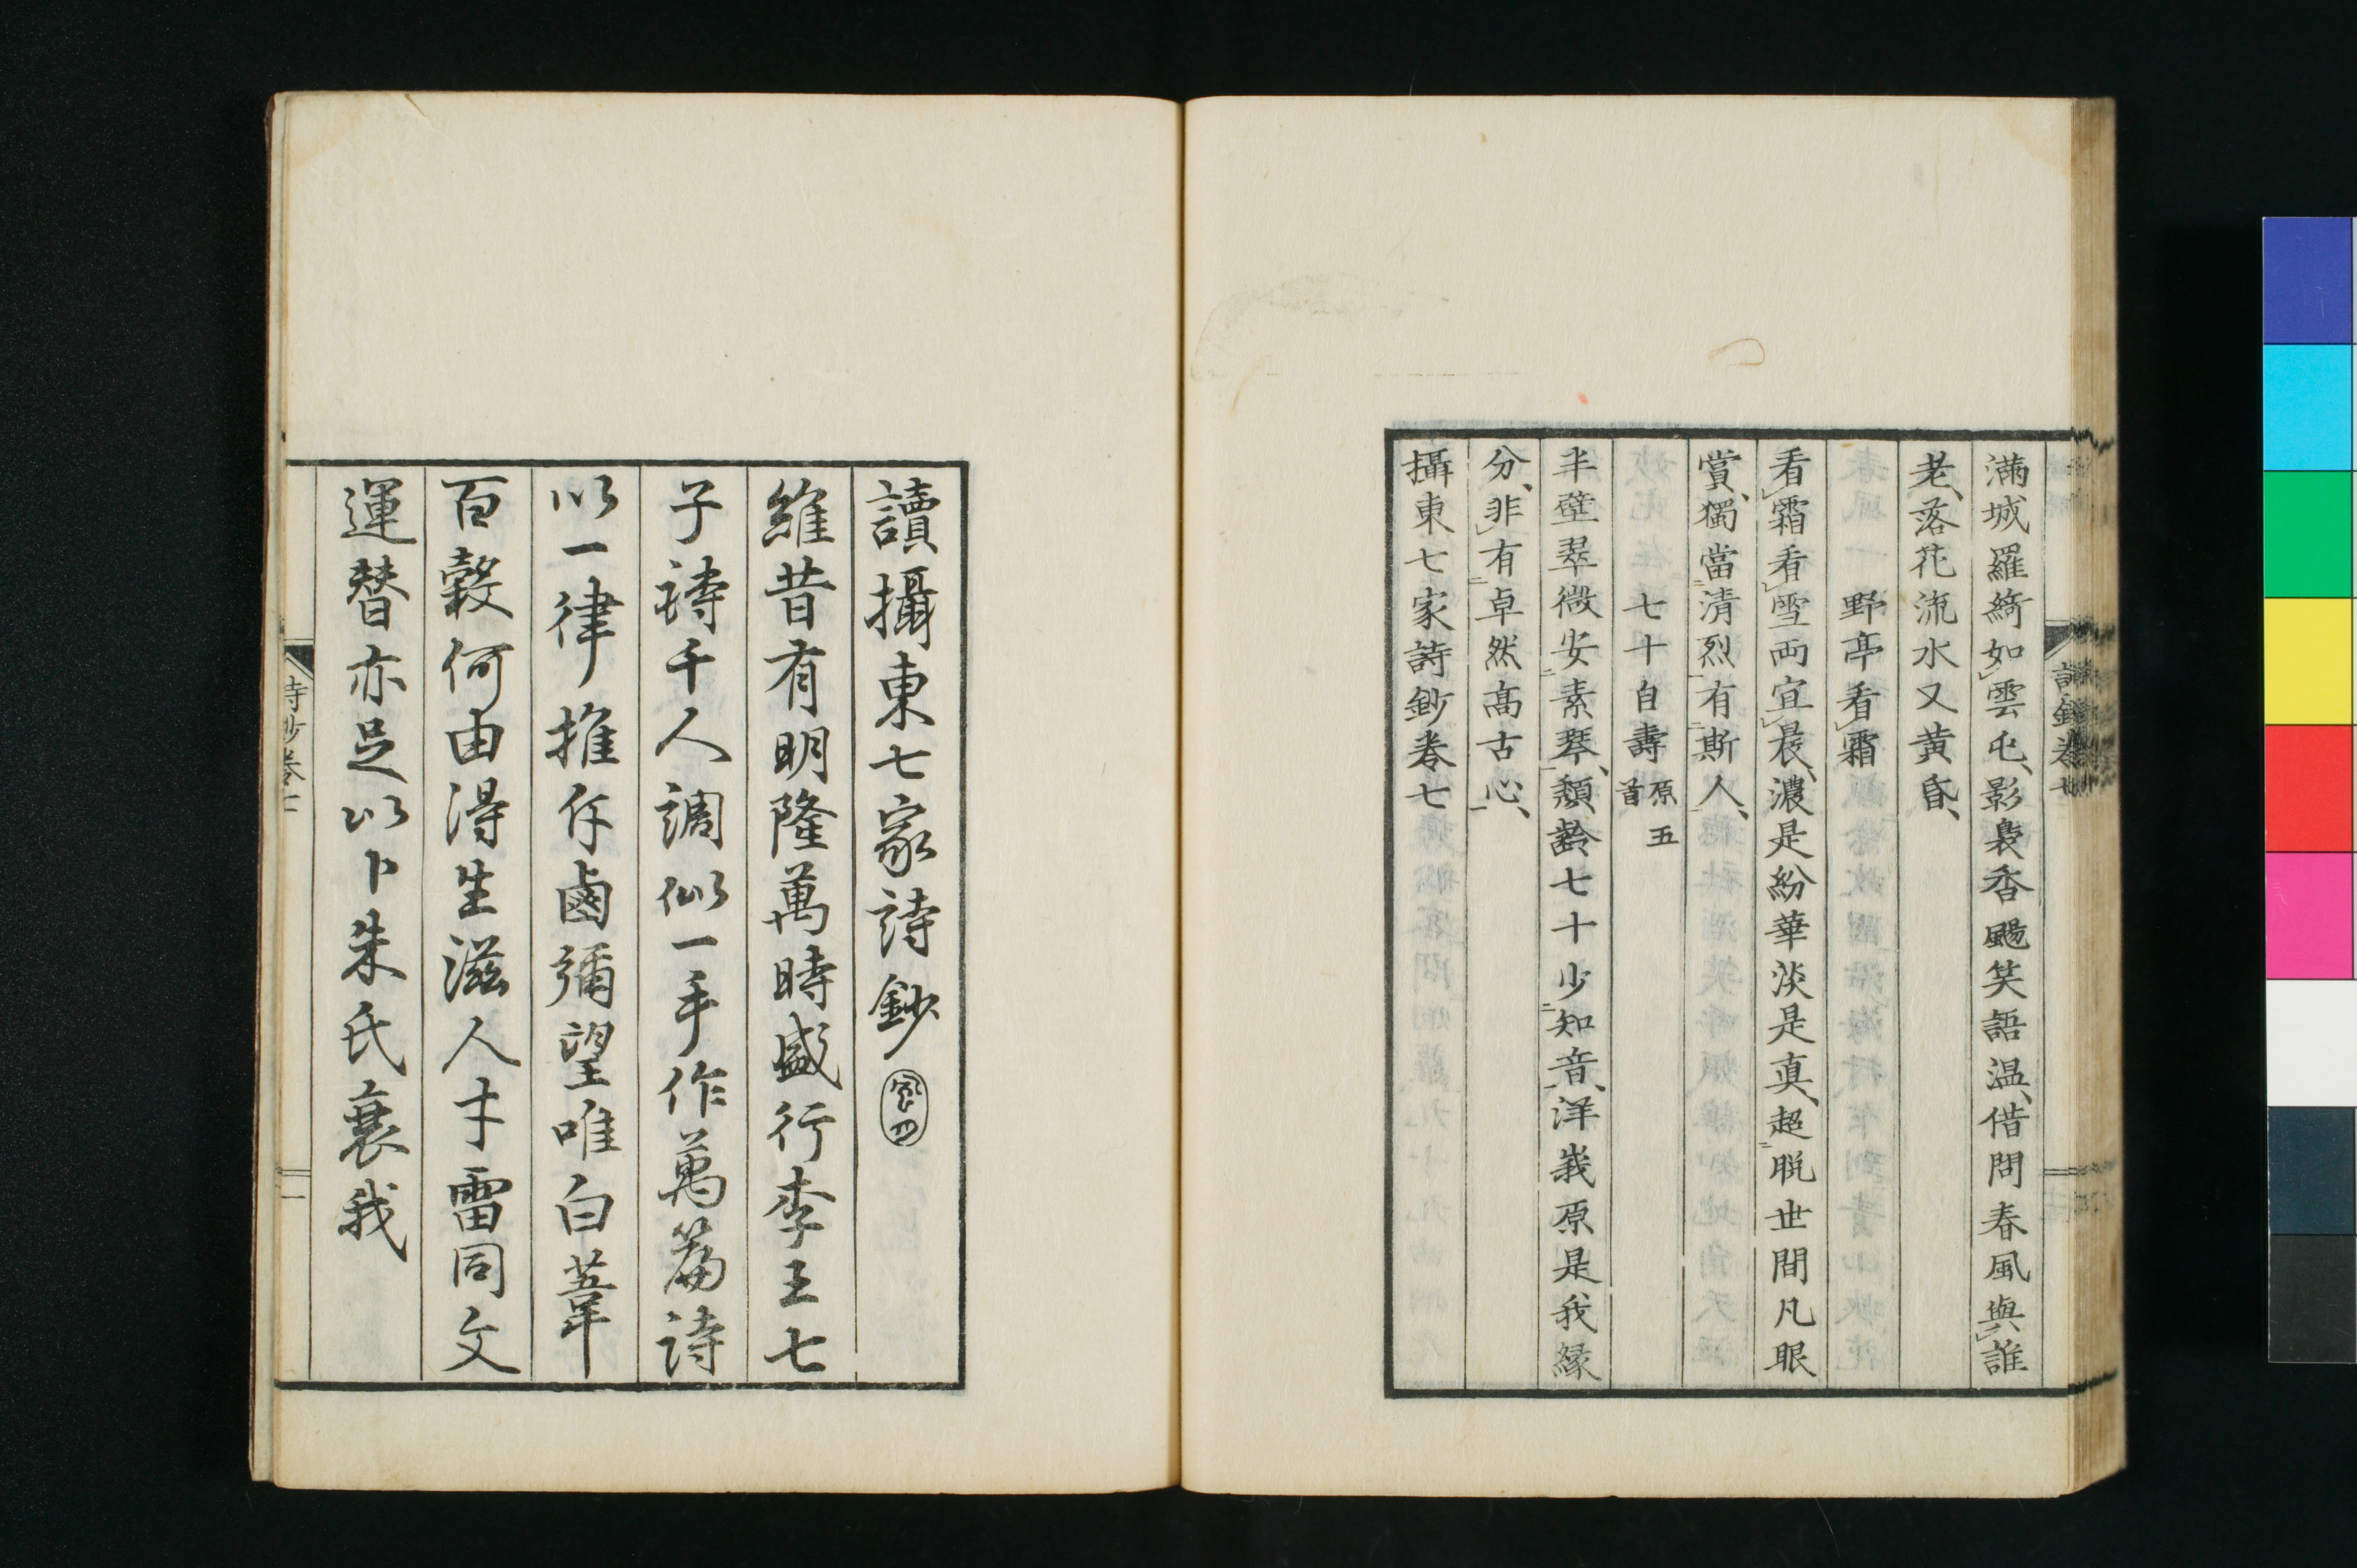 滿城羅綺如雲屯影裊香颺笑語温借問春風與誰
老落花流水又黃昏
野亭看霜
看霜看雪両宜晨濃是紛華淡是真超脱世間凡眼
賞獨當清烈有斯人
七十自壽原五首
半壁翠微安素琴頽齡七十少知音洋峩原是我縁
分非有卓然高古心
攝東七家詩鈔卷七
讀攝東七家詩鈔
維昔有明隆萬時盛行李王七
子詩千人調似一手作萬篇詩
以一律推斥鹵彌望唯白葦
百穀何由得生滋人才雷同文
運替亦足以卜朱氏衰我